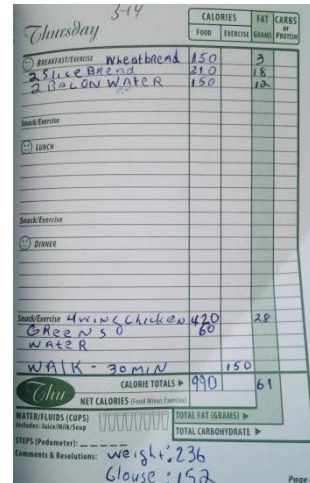 Thursday 5-14
CALORIES FAT CARBS
FOOD EXERCISE GRAMS or PROTEIN
BREAKFAST/EXERCISE Wheatbread 150 3
2 Slice Bread 210 18
2 BACON WATER 150 12
Snack/Exercise
LUNCH
Snack/Exercise
DINNER
Snack/Exercise 4 WING Chicken 420 28
GREENS 60
WATER
WALK - 30 MIN 150
Thu CALORIE TOTALS 990 61
NET CALORIES (Food Minus Exercise)
WATER/FLUIDS (CUPS) TOTAL FAT (GRAMS)
Includes: Juice/Milk/Soup
TOTAL CARBOHYDRATE
STEPS (Pedometer):
Comments & Resolutions: Weight: 236
Glouse: 152 Page